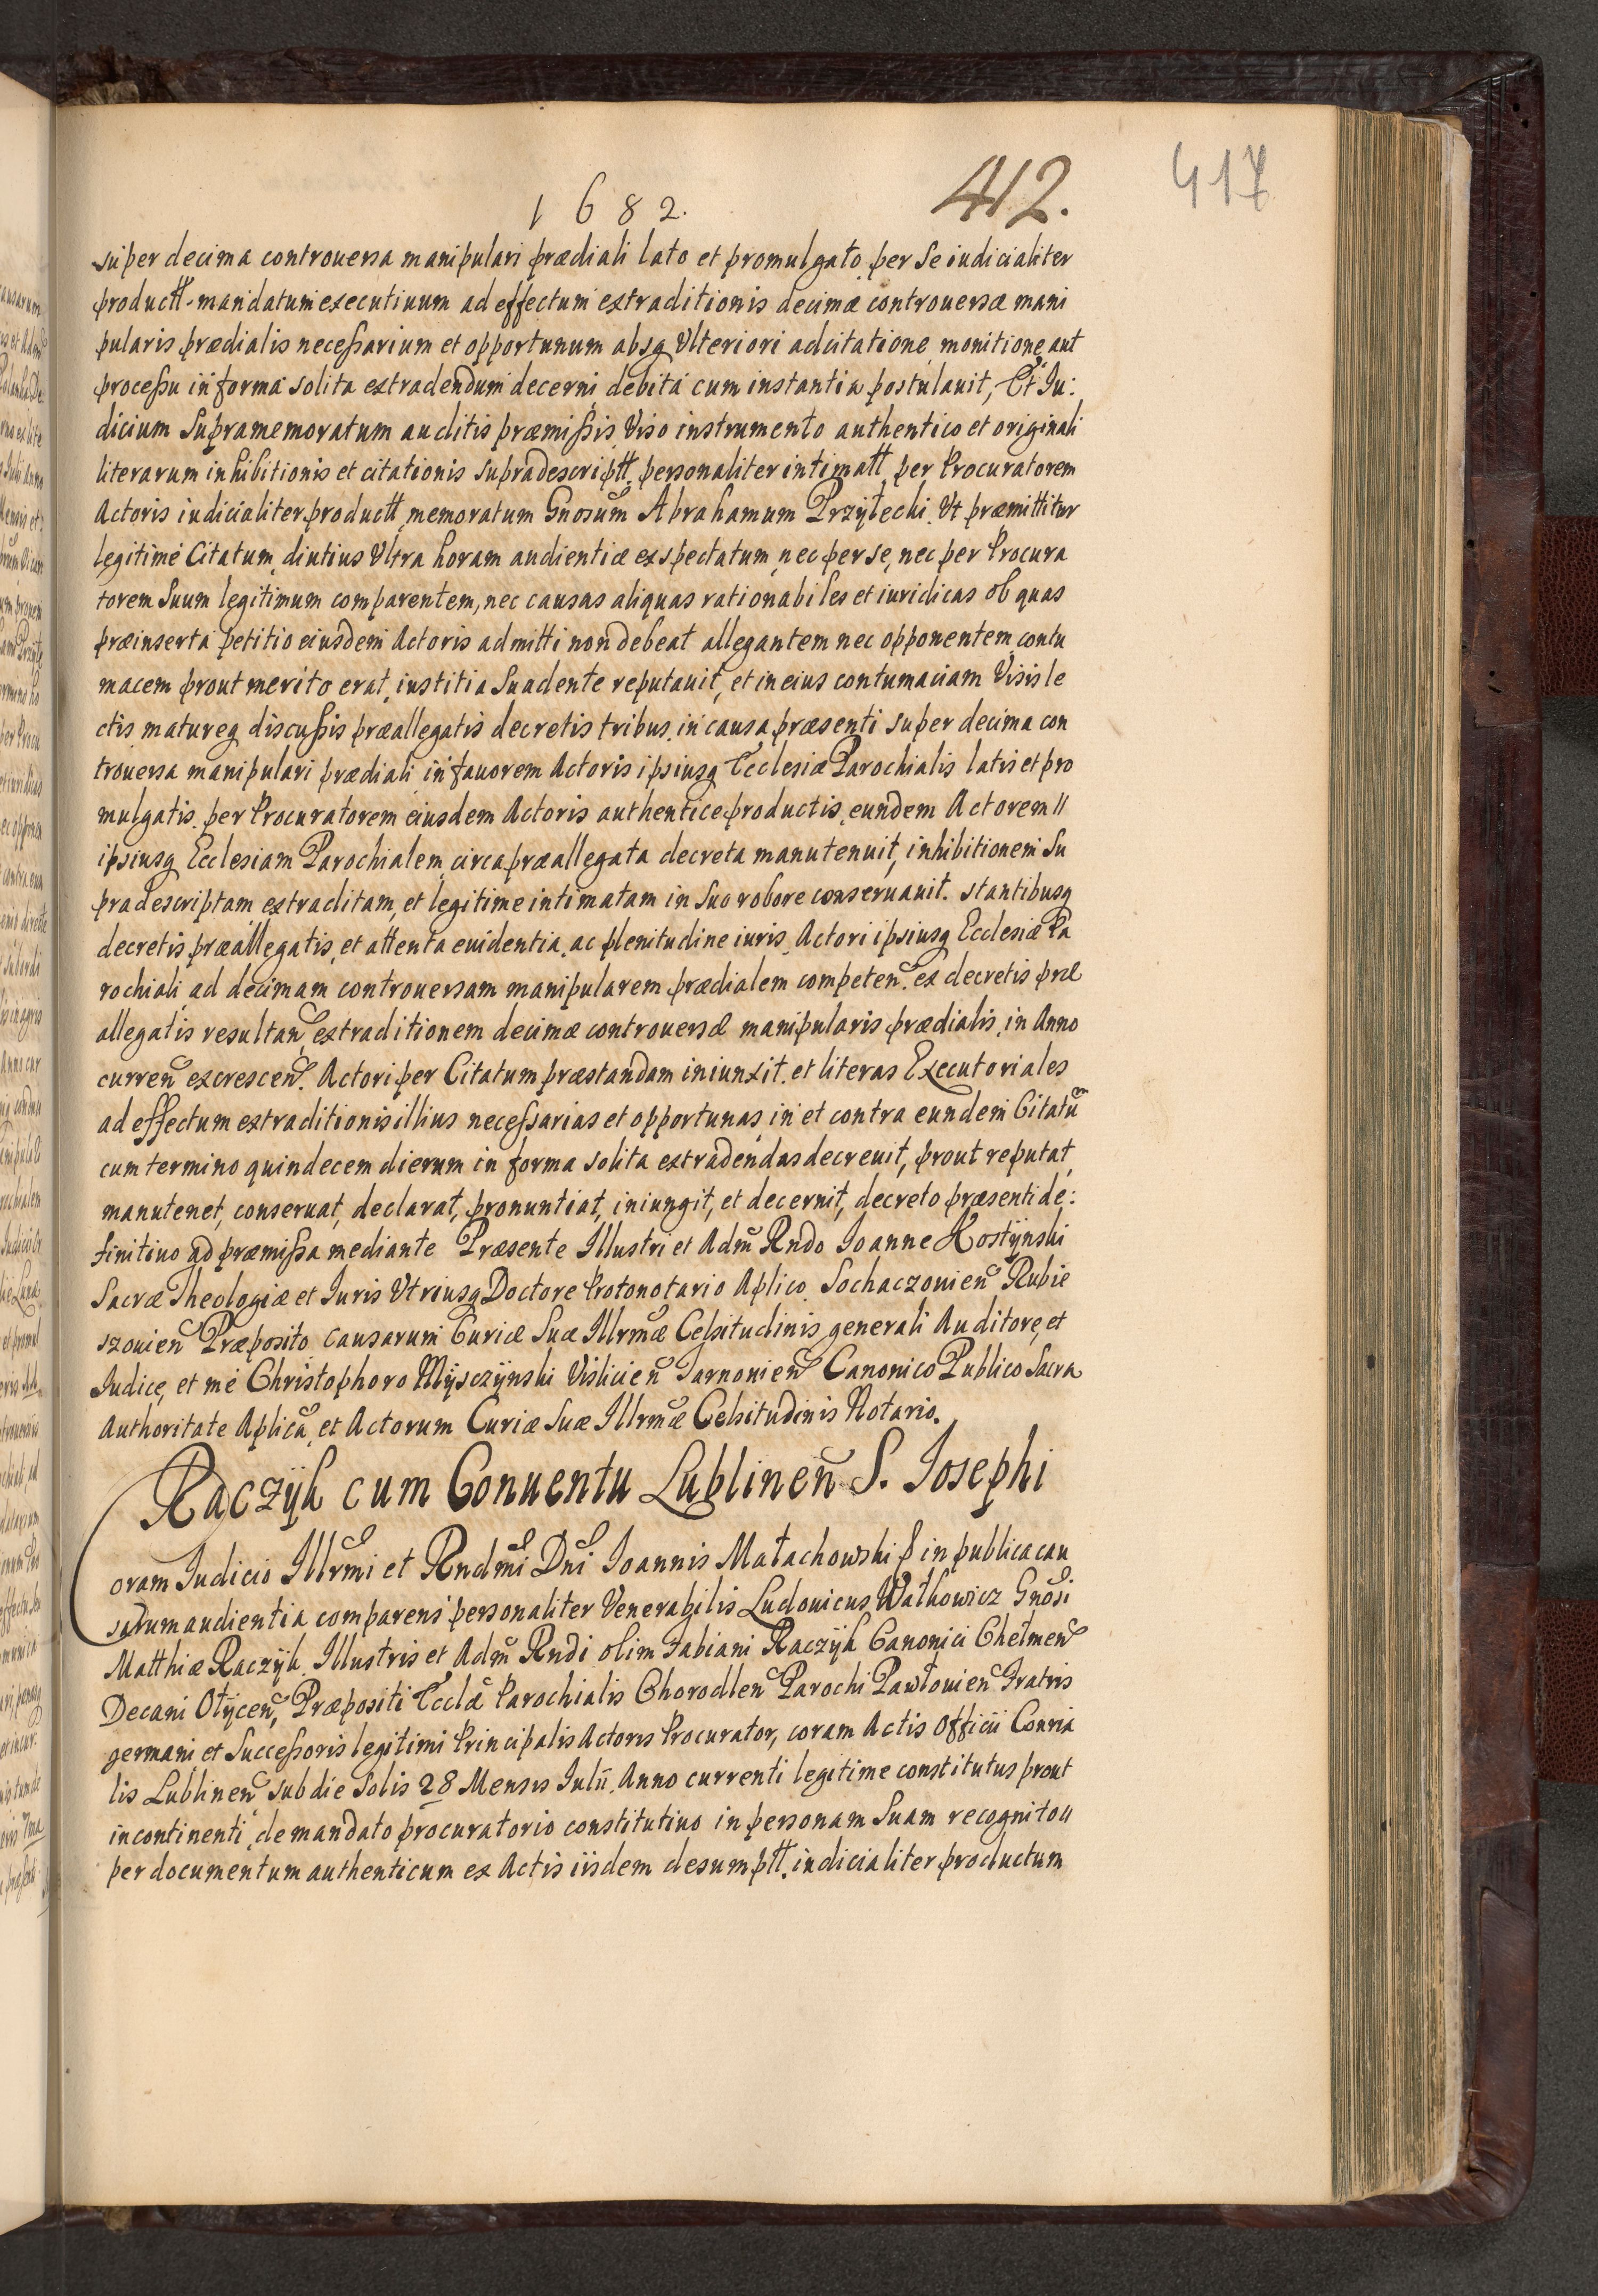 417
412.
1 6 8 2.
super decima controuersa manipulari prædiali lato et promulgato per Se iudicialiter
productt. mandatum executiuum ad effectum extraditionis decimæ controuersæ mani
pularis prædialis necessarium et opportunum absq Vlteriori adcitatione monitione aut
processu in forma solita extradendum decerni debitá cum instantia postulauit, Et Iu:
dicium Supramemoratum auditis præmissis Viso instrumento authentico et originali
literarum inhibitionis et citationis supradescriptt, personaliter intimatt per Procuratorem
Actoris iudicialiter productt memoratum Gnosum̃ Abrahamum Przyłecki. Vt præmittitur
legitimé Citatum, diutius Vltra horam audientiæ exspectatum, nec per se, nec per Procura
torem Suum legitimum comparentem, nec causas aliquas rationabiles et iuridicas ob quas
præinserta petitio eiusdem Actoris admitti non debeat allegantem nec opponentem contu
macem prout merito erat, iustitia Suadente reputauit, et in eius contumaciam Visis le
ctis matureq discussis præallegatis decretis tribus. in causa præsenti super decima con
trouersa manipulari prædiali in fauorem Actoris ipsiusq Ecclesiæ Parochialis latis et pro
mulgatis. per Procuratorem eiusdem Actoris authenticé productis, eundem Actorem //
ipsiusq Ecclesiam Parochialem circa præallegata decreta manutenuit, inhibitionem Su
pradescriptam extraditam, et legitime intimatam in Suo robore conseruauit. stantibusq
decretis præallegatis, et attenta euidentia. ac plenitudine iuris Actori ipsiusq Ecclesiæ Pa
rochiali ad decimam controuersam manipularem prædialem competeñ. ex decretis præ
allegatis resultañ, extraditionem decimæ controuersæ manipularis prædialis, in Anno
curreñ excresceñ. Actori per Citatum præstandam iniunxit. et literas Executoriales
ad effectum extraditionis illius necessarias et opportunas in et contra eundem Citatũ
cum termino quindecem dierum in forma solita extradendas decreuit, prout reputat,
manutenet, conseruat, declarat, pronuntiat, iniungit, et decernit, decreto præsenti de:
finitiuo ad præmissa mediante Præsente Illustri et Adm̃ Rndo Ioanne Hostÿnski
Sacræ Theologiæ et Iuris Vtriusq Doctore Protonotario Aplico. Sochaczouień Rubie
szouień Præposito causarum Curiæ Suæ Illrmæ Celsitudinis generali Auditore, et
Iudice, et mé Christophoro Mÿsczÿnski Vislicień Tarnouień Canonico Publico Sacra
Authoritate Aplicã, et Actorum Curiæ Suæ Illrmæ Celsitudinis Notario.
Raczÿk cum Conuentu Lublineñ S. Iosephi
Coram Iudicio Illrm̃i et Rndm̃i Dñi Ioannis Małachowski in publica cau
sarum audientia comparens personaliter Venerabilis Ludouicus Wałkowicz Gnõsi
Matthiæ Raczÿk. Illustris et Adm̃ Rndi olim Fabiani Raczÿk Canonici Chełmeñ
Decani Otÿceñ, Præpositi Ecclæ Parochialis Chorodleñ Parochi Pawłouień Fratris
germani et Successoris legitimi Principalis Actoris Procurator, coram Actis Officii Consia
lis Lublineñ sub die Solis 28 Mensis Iulii. Anno currenti legitime constitutus prout
incontinenti de mandato procuratorio constitutiuo in personam Suam recognito //
per documentum authenticum ex Actis iisdem desumptt. iudicialiter productum